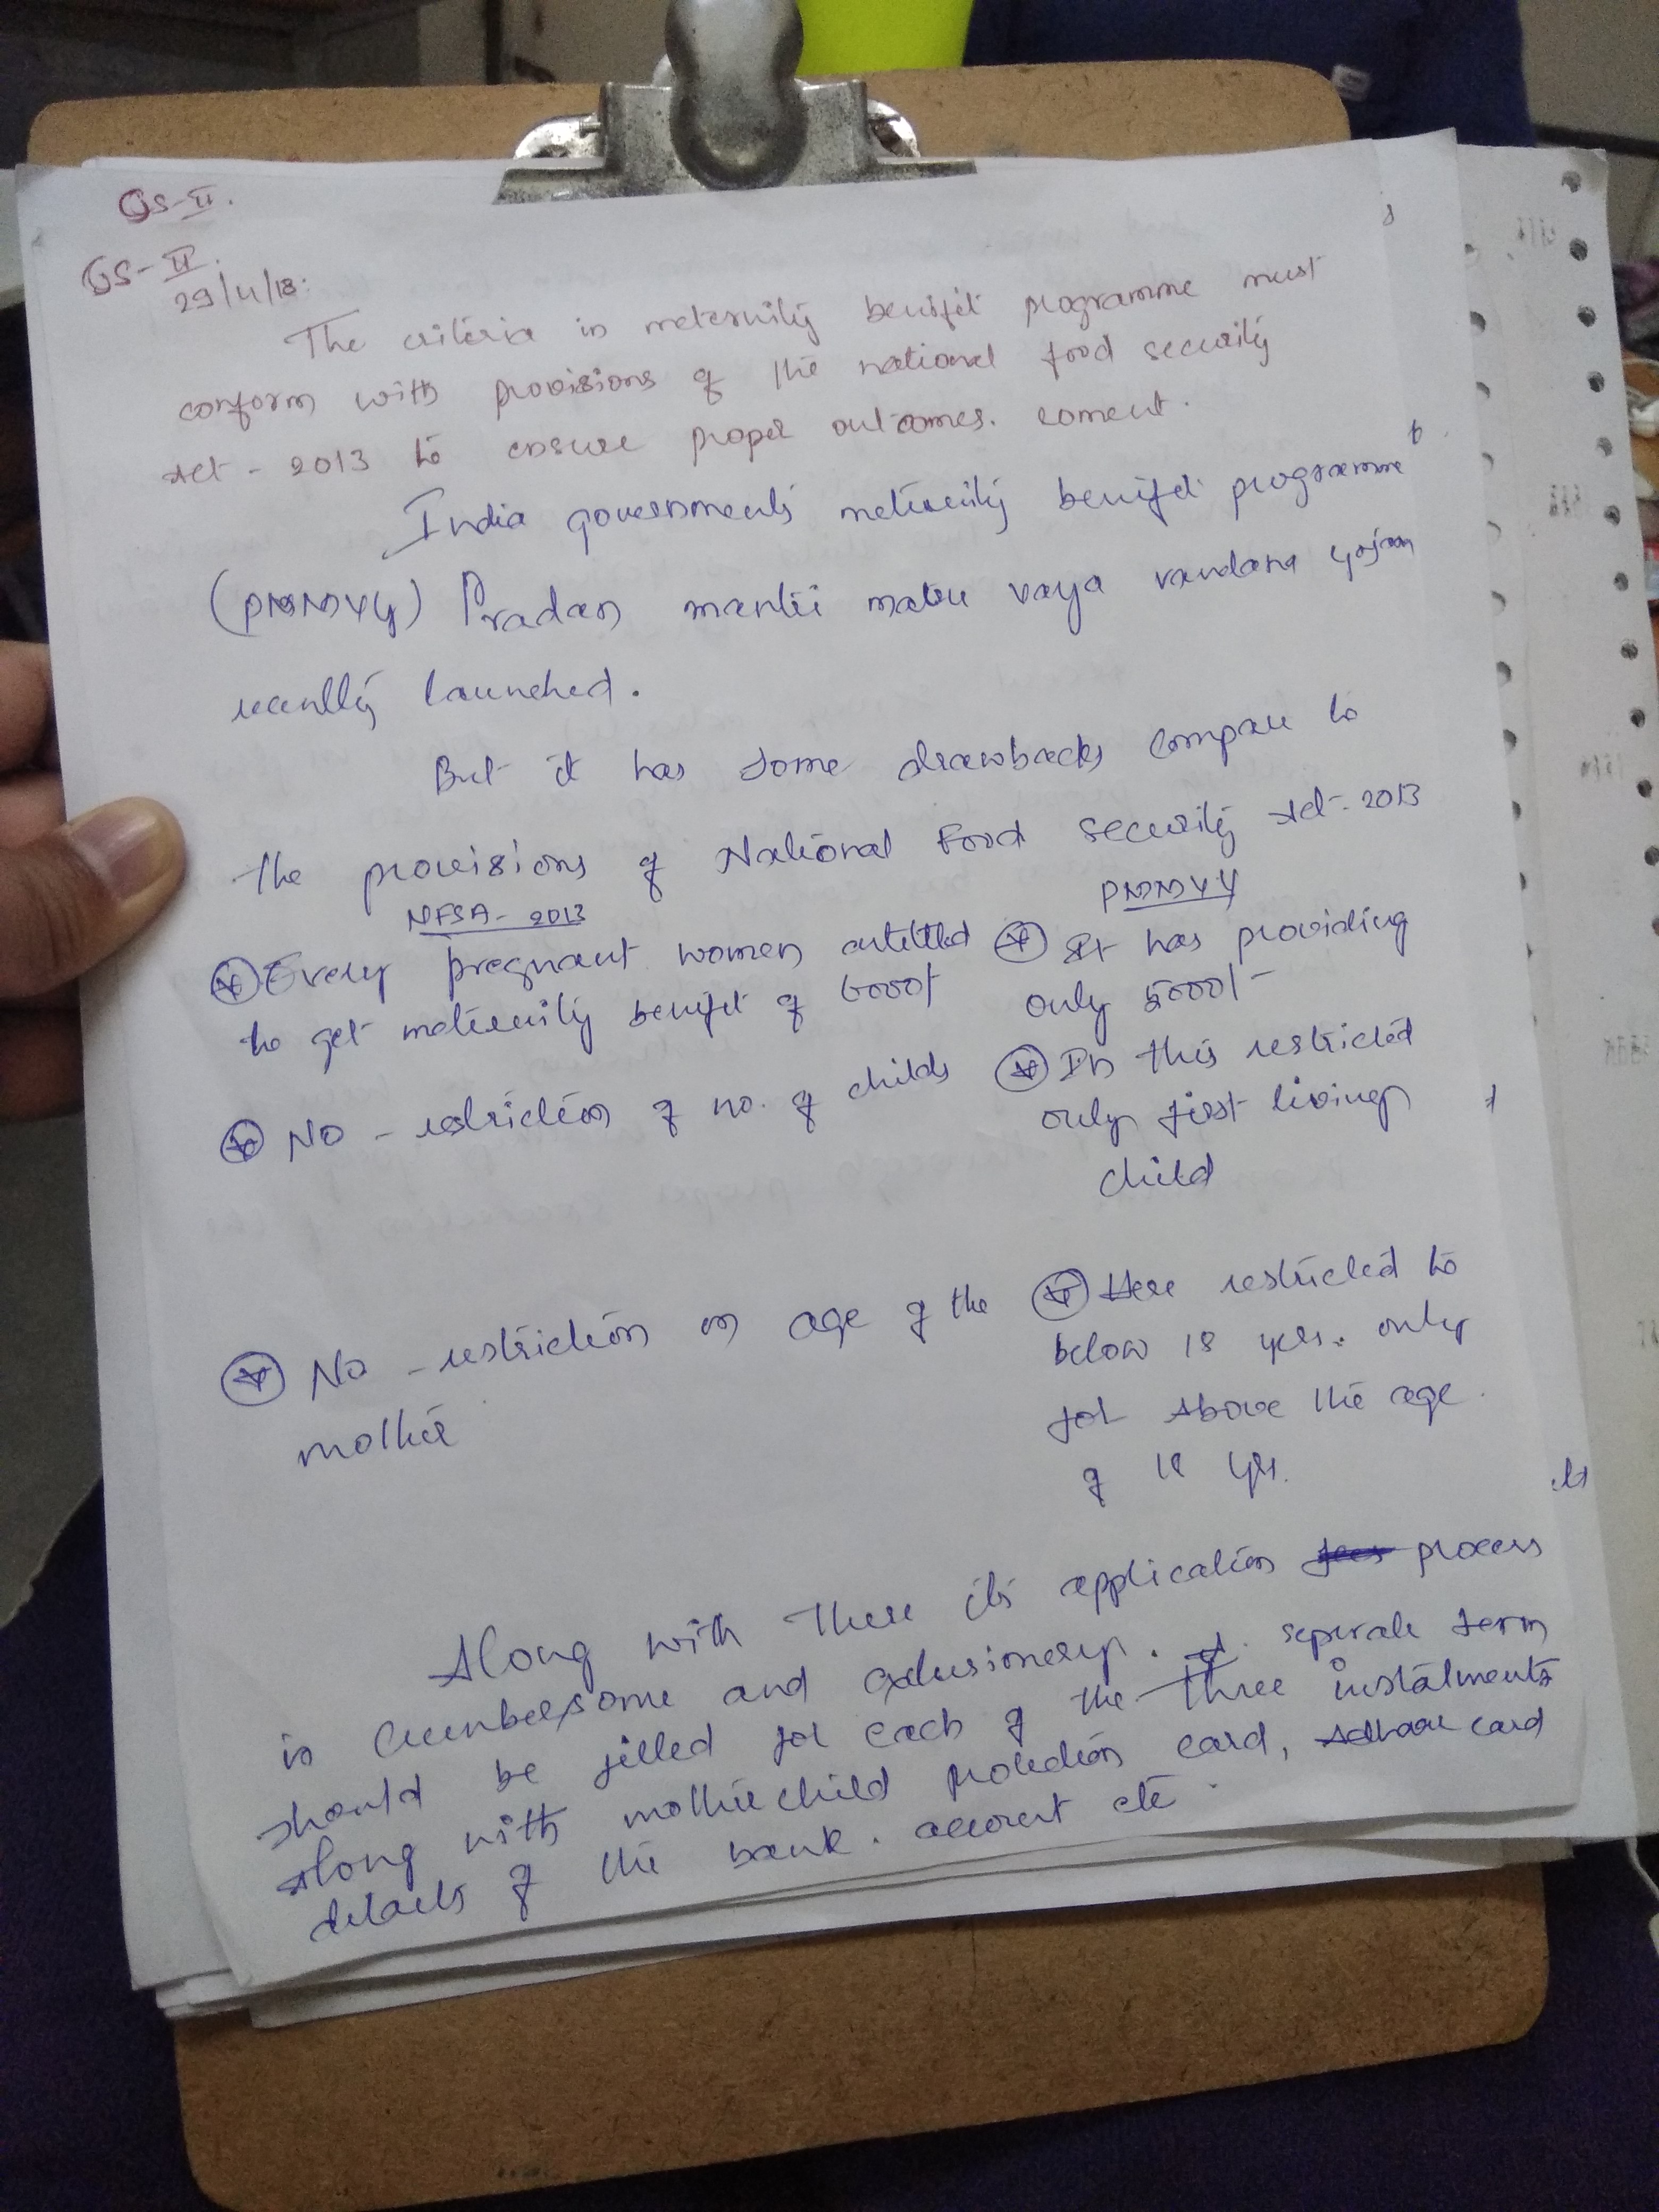 GS-II.
GS-II.
29/11/18:
The criteria in meternity benifit programme must
conform with provisions of the national food security
Act - 2013 to ensure proper outcomes. coment.
India governments meternity benifit programme
(PMMVY) Pradan mantri matru vaya vandana yojan
recently launched.
But it has some drawbacks compare to
the provisions of National Food security Act-2013
NFSA - 2013
PMMVY
Every pregnant women entittled
to get meternity benifit of 6000/-
It has providing
only 5000/-
No - restriction of no. of childs
In this restricted
only first living
child
No - restriction on age of the
mother
Here restricted to
below 18 yrs. only
for Above the age
of 18 yrs.
Along with these its application process
is cumbersome and exclusionery. A seperate form
should be filled for each of the three instalments
Along with mother child protection card, Adhaar card
details of the bank. account etc.